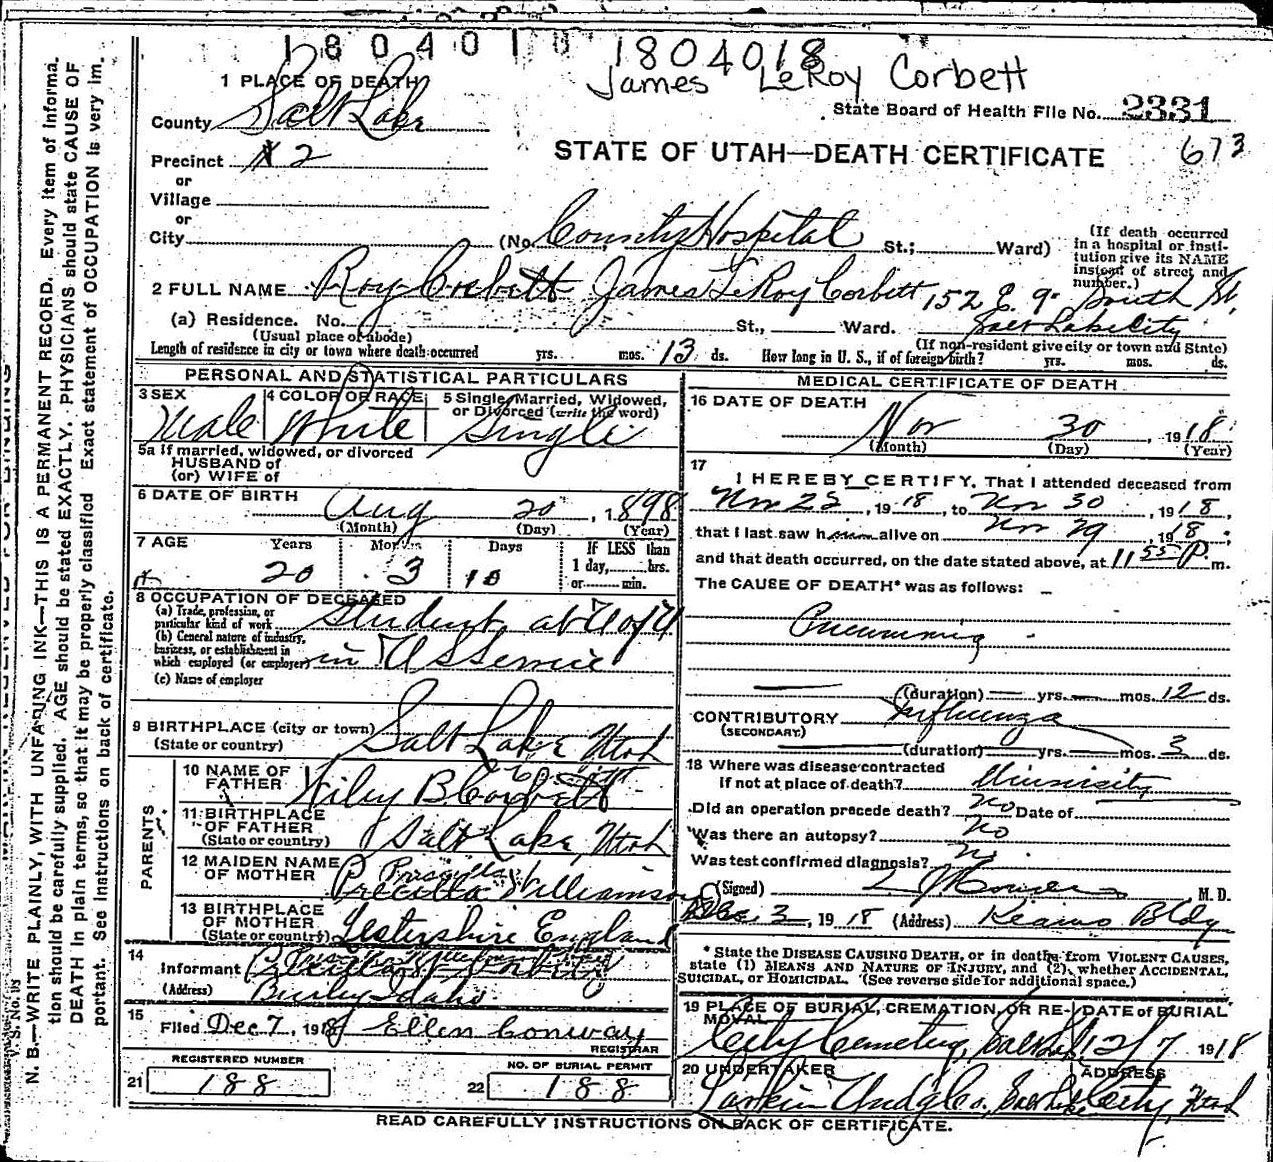 1804018 1804018
James LeRoy Corbett
1 PLACE OF DEATH
State Board of Health File No. 2331
County Salt Lake
STATE OF UTAH—DEATH CERTIFICATE 673
Precinct X 2
or
Village
or
City (No. County Hospital St.; Ward)
(If death occurred in a hospital or institution give its NAME instead of street and number.)
2 FULL NAME Roy Corbett James LeRoy Corbett 152 E. 9" South St,
(a) Residence. No. St., Ward. Salt Lake City
(Usual place of abode) (If non-resident give city or town and State)
Length of residence in city or town where death occurred yrs. mos. 13 ds. How long in U. S., if of foreign birth? yrs. mos. ds.
PERSONAL AND STATISTICAL PARTICULARS
3 SEX Male
4 COLOR OR RACE White
5 Single, Married, Widowed, or Divorced (write the word) Single
5a If married, widowed, or divorced
HUSBAND of
(or) WIFE of
6 DATE OF BIRTH Aug 20, 1898
(Month) (Day) (Year)
7 AGE Years Months Days IF LESS than
1 day, hrs.
or min.
20 3 10
8 OCCUPATION OF DECEASED
(a) Trade, profession, or particular kind of work student at U of U
(b) General nature of industry, business, or establishment in which employed (or employer) in U S Service
(c) Name of employer
9 BIRTHPLACE (city or town) Salt Lake Utah
(State or country)
PARENTS
10 NAME OF FATHER Wiley B Corbett
11 BIRTHPLACE OF FATHER Salt Lake, Utah
(State or country)
12 MAIDEN NAME OF MOTHER Priscilla Precilla Williamson
13 BIRTHPLACE OF MOTHER Lestershire England
(State or country)
14
Informant
(Address) Burley Idaho
15
Filed Dec 7, 1918 Ellen Conway
REGISTRAR
REGISTERED NUMBER
21 188
NO. OF BURIAL PERMIT
22 188
MEDICAL CERTIFICATE OF DEATH
16 DATE OF DEATH
Nov 30, 1918
(Month) (Day) (Year)
17
I HEREBY CERTIFY, That I attended deceased from
Nov 22, 1918, to Nov 30, 1918,
that I last saw him alive on Nov 29, 1918;
and that death occurred, on the date stated above, at 11 55 P. m.
The CAUSE OF DEATH* was as follows:
Pneumonia
(duration) yrs. mos. 12 ds.
CONTRIBUTORY Influenza
(SECONDARY)
(duration) yrs. mos. 3 ds.
18 Where was disease contracted
If not at place of death? University
Did an operation precede death? no Date of
Was there an autopsy? no
Was test confirmed diagnosis? no
(Signed) M. D.
Dec. 2, 1918 (Address) Kearns Bldg
* State the DISEASE CAUSING DEATH, or in deaths from VIOLENT CAUSES,
state (1) MEANS AND NATURE OF INJURY, and (2), whether ACCIDENTAL,
SUICIDAL, or HOMICIDAL. (See reverse side for additional space.)
19 PLACE OF BURIAL, CREMATION, OR REMOVAL
City Cemetery, Salt Lake
DATE of BURIAL
12/7 1918
20 UNDERTAKER
Larkin Undg Co.
ADDRESS
Salt Lake City, Utah
READ CAREFULLY INSTRUCTIONS ON BACK OF CERTIFICATE.
V. S. No. 98
N. B.—WRITE PLAINLY, WITH UNFADING INK—THIS IS A PERMANENT RECORD. Every item of informa
tion should be carefully supplied. AGE should be stated EXACTLY. PHYSICIANS should state CAUSE OF
DEATH in plain terms, so that it may be properly classified. Exact statement of OCCUPATION is very im.
portant. See instructions on back of certificate.